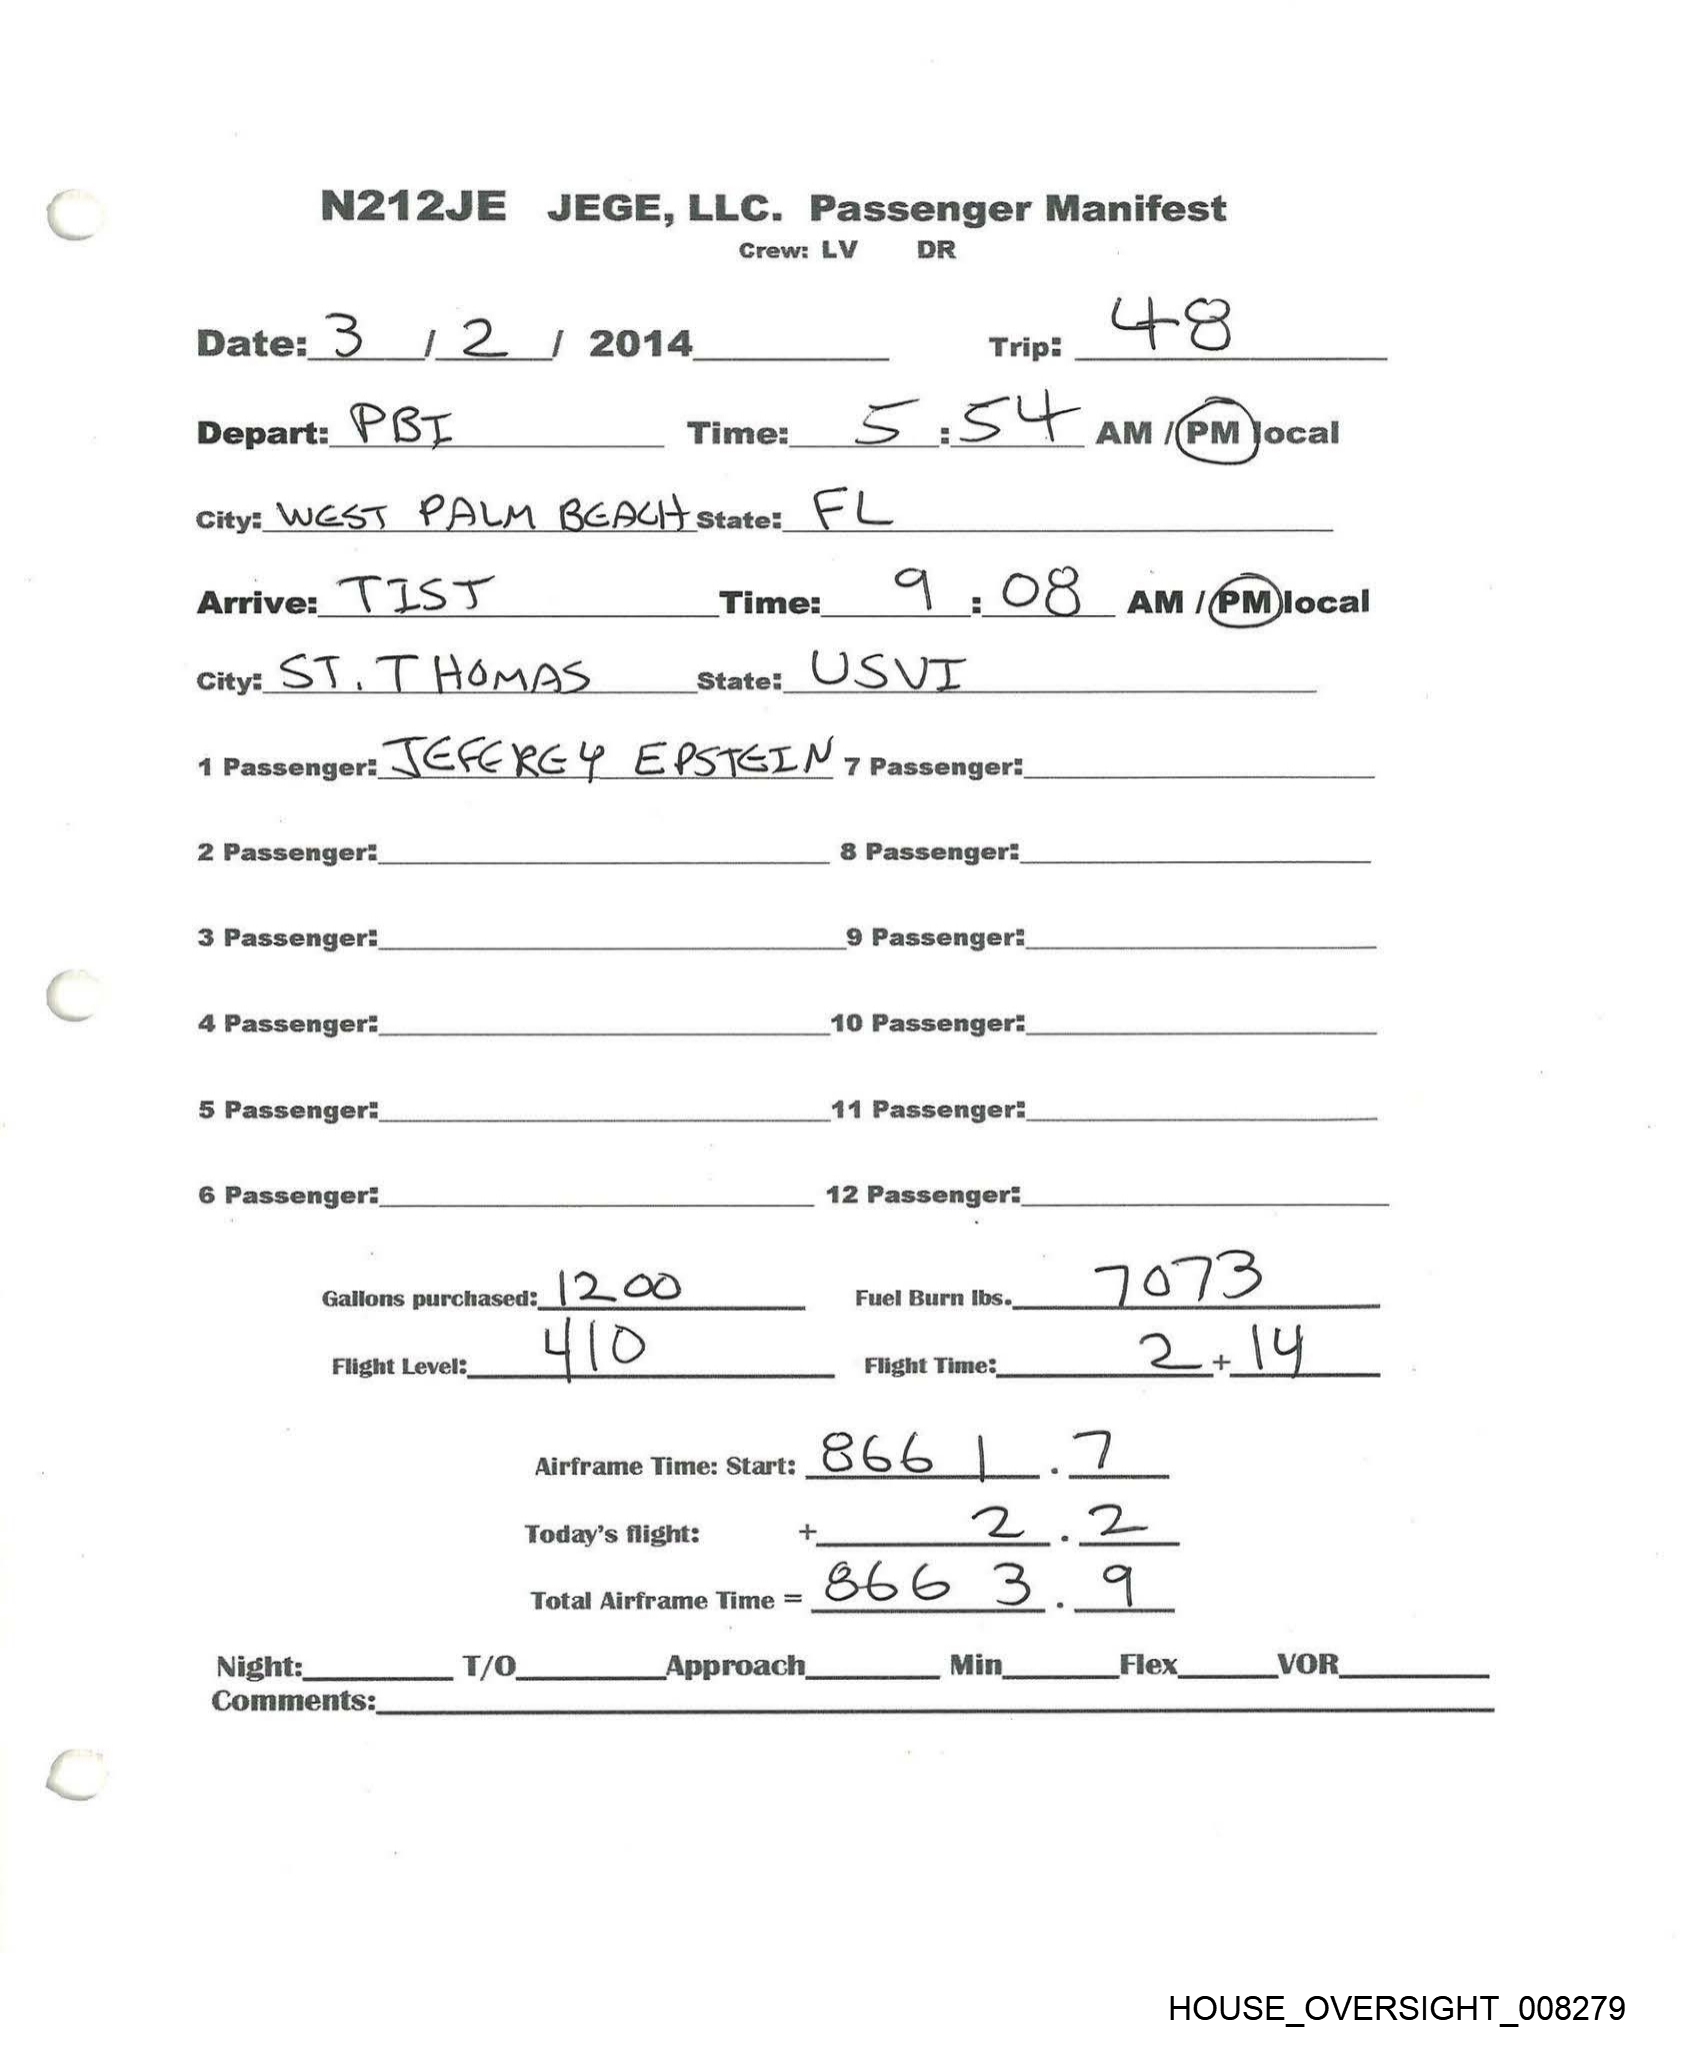 N212JE JEGE, LLC. Passenger Manifest
Crew: LV DR
Date: 3 / 2 / 2014 Trip: 48
Depart: PBI Time: 5:54 AM / PM local
City: WEST PALM BEACH State: FL
Arrive: TIST Time: 9:08 AM / PM local
City: ST. THOMAS State: USVI
1 Passenger: JEFFREY EPSTEIN 7 Passenger:
2 Passenger: 8 Passenger:
3 Passenger: 9 Passenger:
4 Passenger: 10 Passenger:
5 Passenger: 11 Passenger:
6 Passenger: 12 Passenger:
Gallons purchased: 1200 Fuel Burn lbs. 7073
Flight Level: 410 Flight Time: 2 + 14
Airframe Time: Start: 8661.7
Today's flight: + 2.2
Total Airframe Time = 8663.9
Night: T/O Approach Min Flex VOR
Comments:
HOUSE_OVERSIGHT_008279